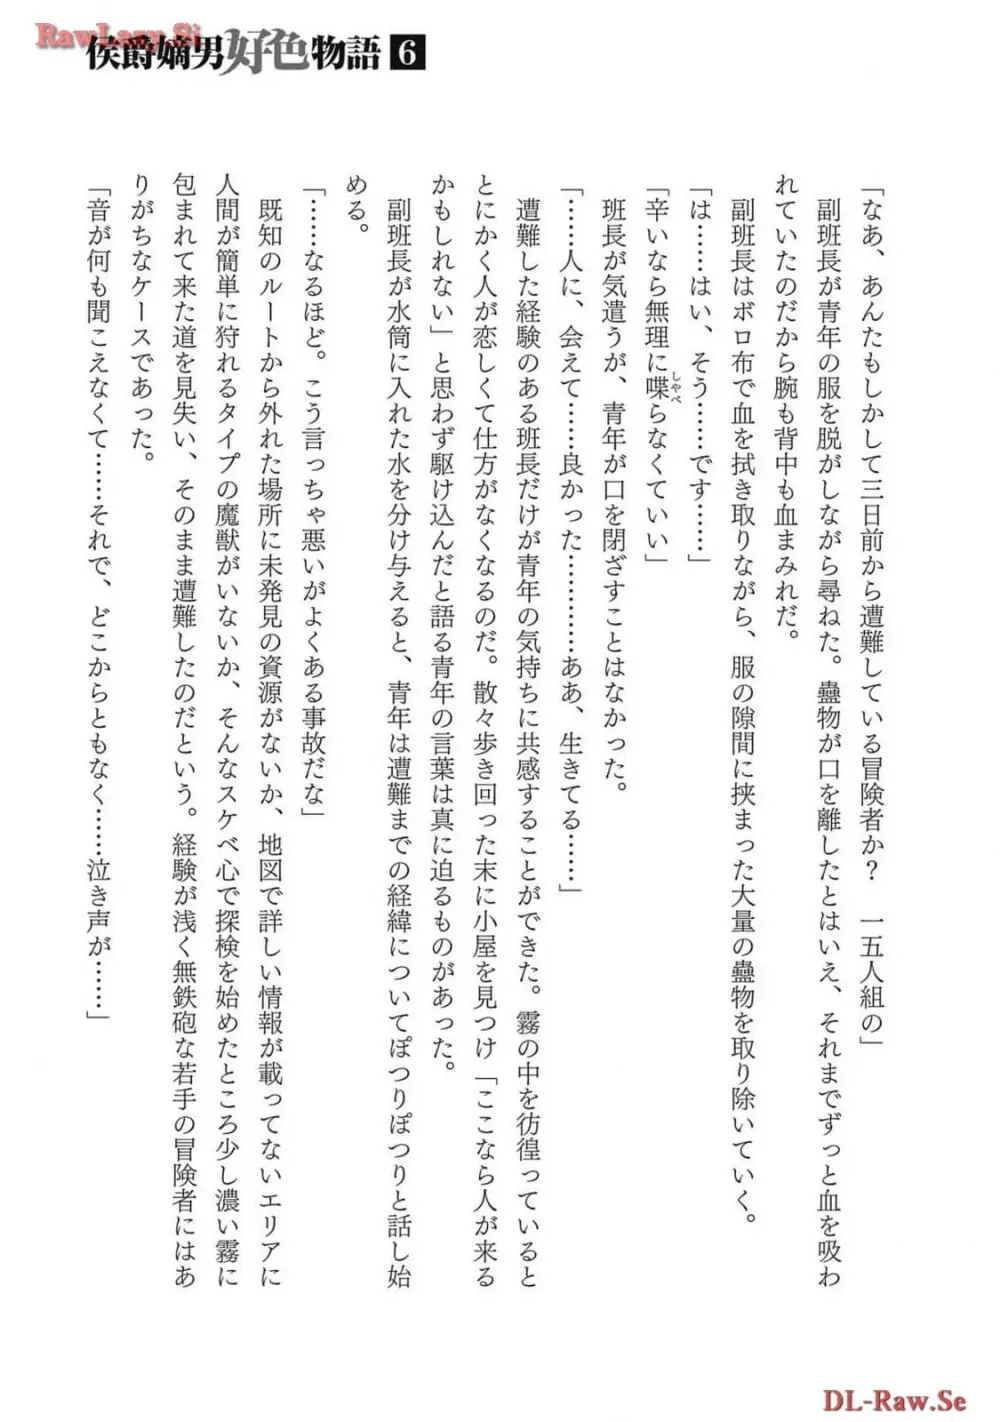 RawLazy.Si
侯爵嫡男好色物語 6
「なあ、あんたもしかして三日前から遭難している冒険者か?　一五人組の」
副班長が青年の服を脱がしながら尋ねた。蠱物が口を離したとはいえ、それまでずっと血を吸わ
れていたのだから腕も背中も血まみれだ。
副班長はボロ布で血を拭き取りながら、服の隙間に挟まった大量の蠱物を取り除いていく。
「は……はい、そう……です……」
「辛いなら無理に喋らなくていい」
しゃべ
班長が気遣うが、青年が口を閉ざすことはなかった。
「……人に、会えて……良かった…………ああ、生きてる……」
遭難した経験のある班長だけが青年の気持ちに共感することができた。霧の中を彷徨っていると
とにかく人が恋しくて仕方がなくなるのだ。散々歩き回った末に小屋を見つけ「ここなら人が来る
かもしれない」と思わず駆け込んだと語る青年の言葉は真に迫るものがあった。
副班長が水筒に入れた水を分け与えると、青年は遭難までの経緯についてぽつりぽつりと話し始
める。
「……なるほど。こう言っちゃ悪いがよくある事故だな」
既知のルートから外れた場所に未発見の資源がないか、地図で詳しい情報が載ってないエリアに
人間が簡単に狩れるタイプの魔獣がいないか、そんなスケベ心で探検を始めたところ少し濃い霧に
包まれて来た道を見失い、そのまま遭難したのだという。経験が浅く無鉄砲な若手の冒険者にはあ
りがちなケースであった。
「音が何も聞こえなくて……それで、どこからともなく……泣き声が……」
DL-Raw.Se